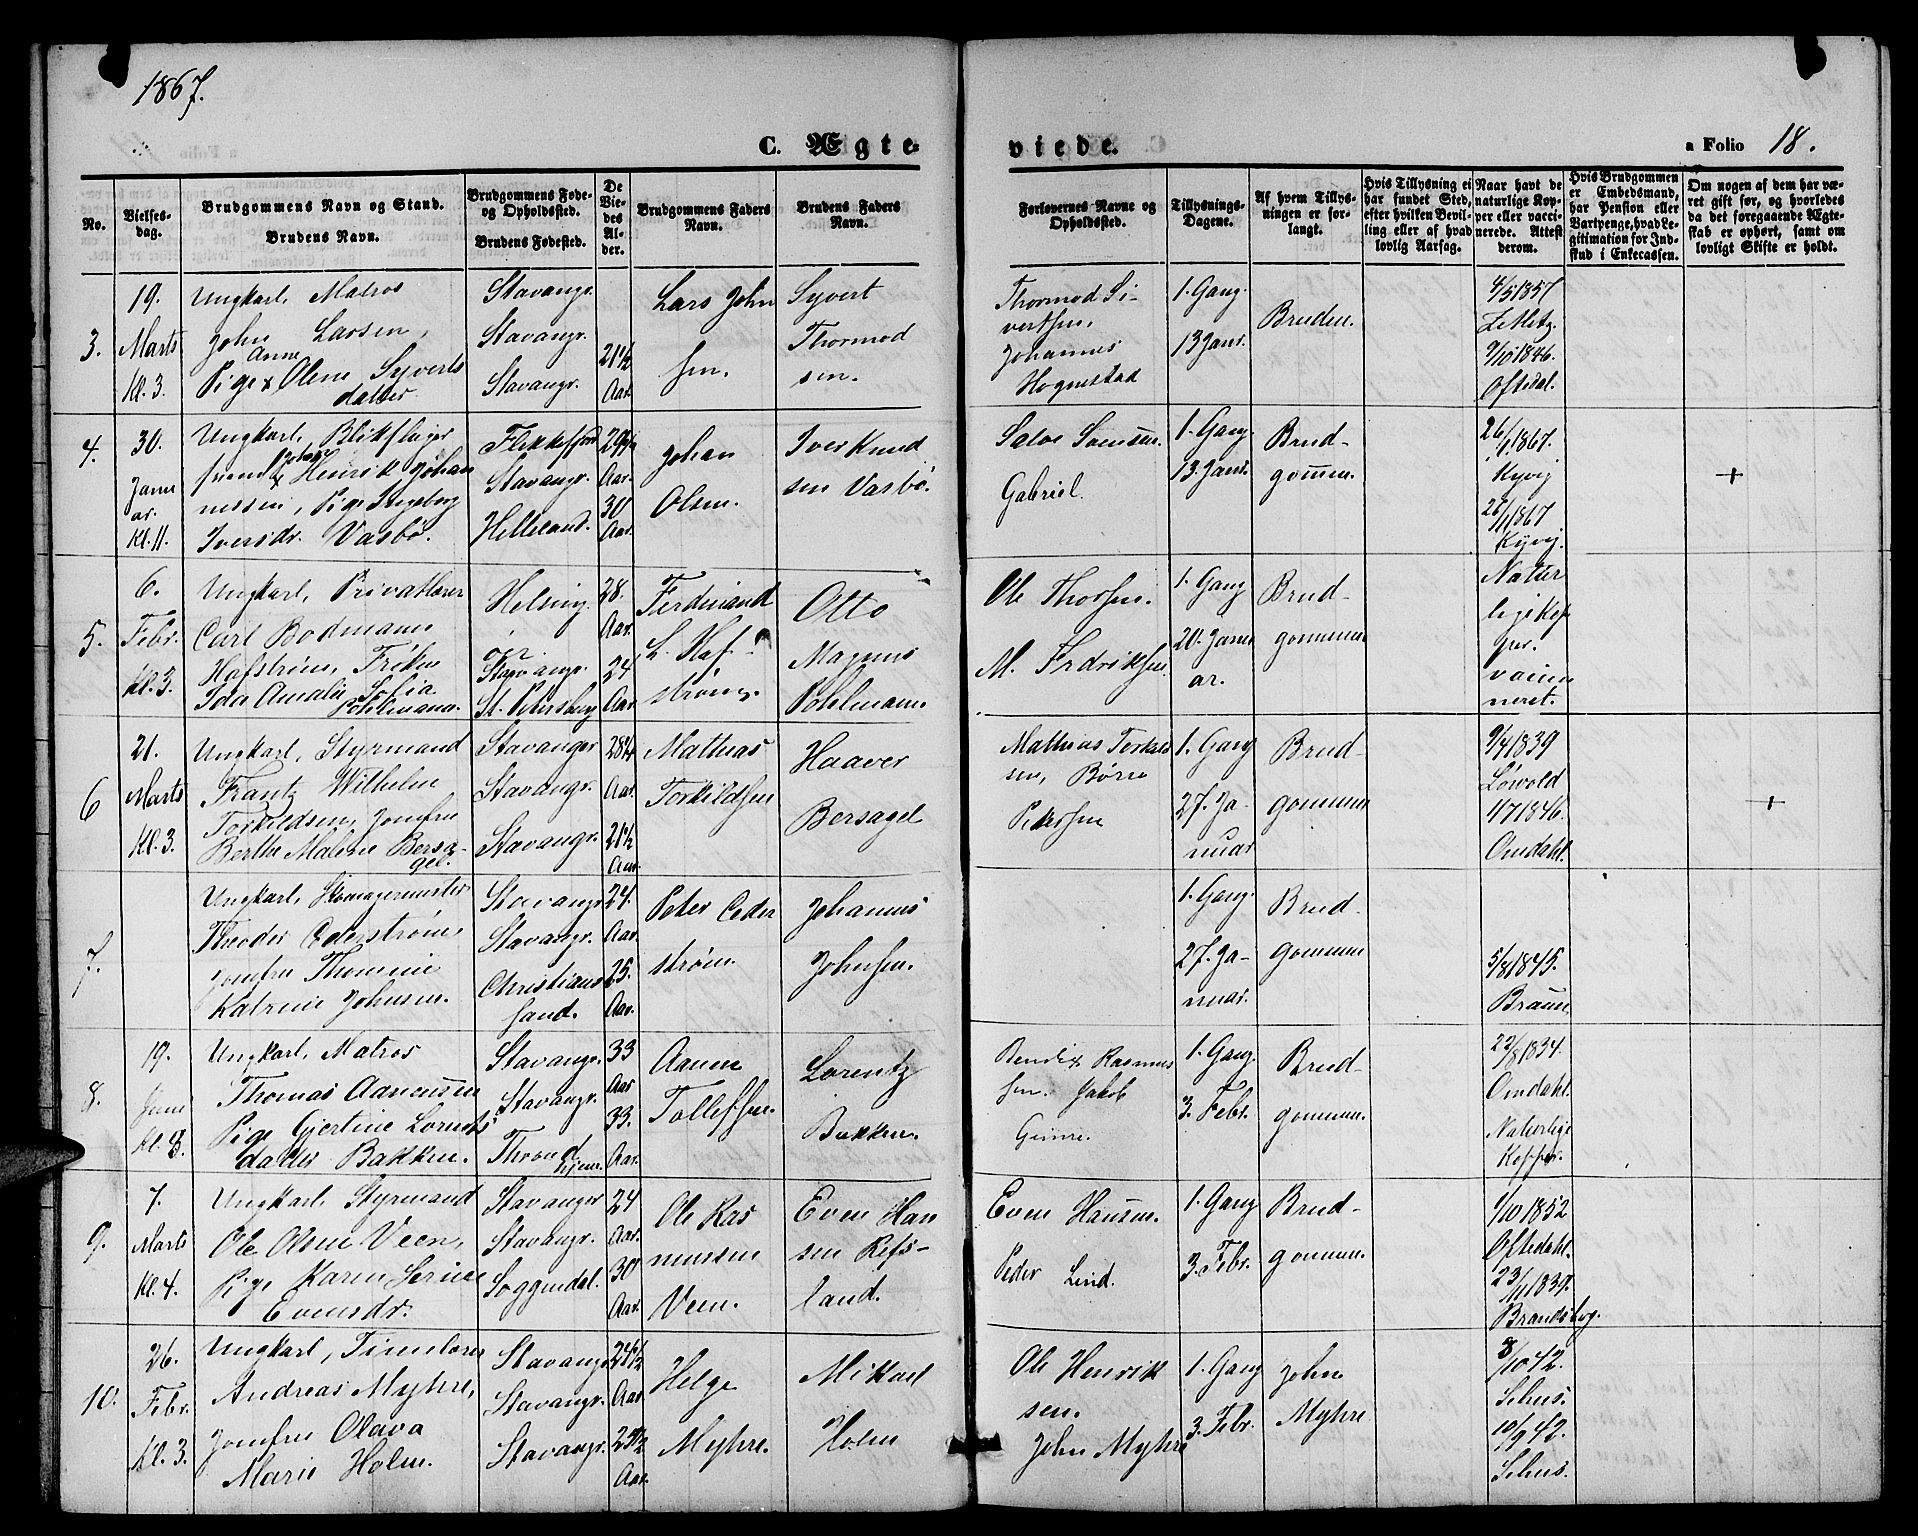 1867.
C. Ægte-
viede.
a Folio 18.
No.
Vielses-
dag.
Brudgommens Navn og Stand.
Brudens Navn.
Brudgommens Føde-
og Opholdssted.
Brudens Fødested.
De
Vie-
des
Al-
der.
Brudgommens Faders
Navn.
Brudens Faders
Navn.
Forlovernes Navne og
Opholdssted.
Tillysnings-
Dagene.
Af hvem Tillys-
ningen er for-
langt.
Hvis Tillysning ei
har fundet Sted,
efter hvilken Bevil-
ling eller af hvad
lovlig Aarsag.
Naar havt de
naturlige Kop-
per eller vacci-
nerede. Attest
derom.
Hvis Brudgommen
er Embedsmand,
har Pension eller
Vartpenge, hvad Le-
gitimation for Ind-
skud i Enkecassen.
Om nogen af dem har væ-
ret gift før, og hvorledes
da det foregaaende Ægte-
skab er ophørt, samt om
lovligt Skifte er holdt.
3.
19.
Marts
Kl. 3.
Ungkarl, Matros
John Larsen,
Anne
Pige x Olene Syverts
datter
Stavangr.
Stavangr.
Stavangr.
21 1/2
Aar.
Lars John
sen.
Syvert
Thormod
sen.
Thormod Si-
vertsen,
Johannes
Hognestad
1. Gang.
13 Janr.
Bruden.
4/5 1857
Z. Metz.
9/10 1846.
Oftedal.
4.
30.
Janu
ar.
Kl. 11.
Ungkarl, Blikslager
svend x Henrik Johan
nessen, Pige Ingeborg
Iversdr. Vasbø.
Flekkefjord
Stavangr.
Helleland.
Aar.
30
Aar.
Johan
Olsen.
Iver Knud
sen Vasbø.
Salve Samsen.
Gabriel.
1. Gang
13. Janr.
Brud-
gommen.
26/1 1867.
Kyvig
26/1 1867
Kyvig.
+
5.
6.
Febr.
Kl. 3.
Ungkarl, Privatlærer
Carl Bodmann
Hafstrøm, Frøken
Ida Amalie Sofia
Pohlmann.
Helsing
ør
Stavangr.
St. Petersborg
28.
Aar.
24
Aar.
Ferdinand
L. Haf-
strøm.
Otto
Magnus
Pohlmann
Ole Thorsen.
M. Fredriksen.
1. Gang
20. Janu
ar.
Brud-
gommen
Natur
lige Kop
per.
vaccin
neret.
6
21.
Marts
Kl. 3.
Ungkarl, Styrmand
Frantz Wilhelm
Torkildsen, Jomfru
Berthe Malene Bersa-
gel.
Stavanger
Stavangr.
Stavangr.
28 1/4
Aar.
21 1/2
Aar.
Mathias
Torkildsen
Haaver
Bersagel
Mathias Torkild
sen, Børre
Pedersen
1. Gang
27. Ja-
nuar
Brud-
gommen
9/4 1839
Løwold
4/7 1846.
Omdahl.
+
7.
Ungkarl,
Theodor Cederstrøm,
Jomfru Thomine
Katrine Johnsen.
Stavangr
Stavangr.
Christians
sand.
24.
Aar.
25.
Aar.
Peter Ceder
strøm.
Johannes
Johnsen.
1. Gang.
27. Ja-
nuar.
Brud-
gommen
5/8 1845.
Braun
8.
19.
Juni
Kl. 8.
Ungkarl, Matros
Thomas Aanensen
Pige Gjertine Lorents
datter Bakken.
Stavangr.
Stavangr.
Thrond
hjem.
33
Aar
33.
Aar.
Aanen
Tollefsen.
Lorentz
Bakken.
Bendix Rasmus
sen. Jakob
Gimre.
1. Gang
3. Febr.
Brud-
gommen.
22/8 1834.
Omdahl.
Naturlige
Kopper.
9.
7.
Marts
Kl. 4.
Ungkarl, Styrmand
Ole Olsen Veen,
Pige Karen Serine
Evensdr.
Stavanger
Stavangr.
Soggendal.
24
Aar.
30
Aar.
Ole Ras
mussen
Veen.
Even Han
sen Refs-
land.
Even Hansen.
Peder Lind.
1. Gang
3. Febr.
Brud-
gommen.
1/10 1852
Oftedahl.
23/11 1839.
Brandsbog.
10.
26.
Febr.
Kl. 3.
Ungkarl, Timelærer
Andreas Myhre,
Jomfru Olava
Marie Holm.
Stavangr
Stavangr.
Stavangr.
24 1/2
Aar.
25 1/2
Aar.
Helge
Myhre.
Mikael
Holm
Ole Henrik
sen.
John Myhre
1. Gang
3. Febr.
John
Myhre
8/10 42.
Sehus.
10/9 42.
Sehus.